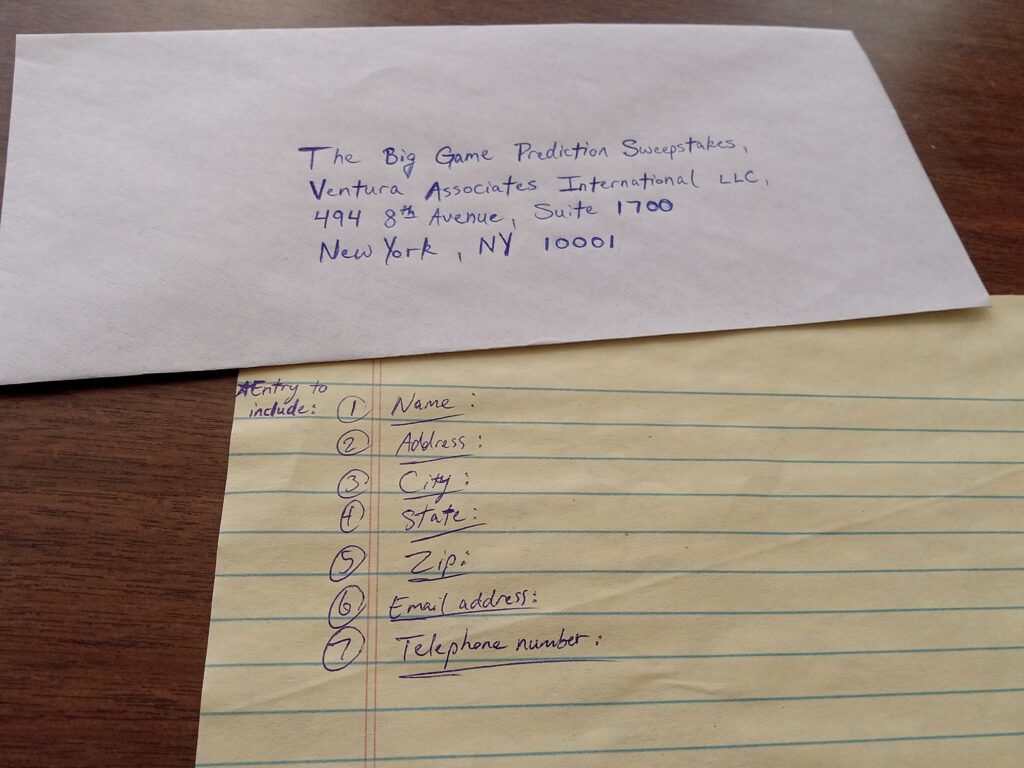 The Big Game Prediction Sweepstakes,
Ventura Associates International LLC,
494 8th Avenue, Suite 1700
New York, NY 10001
*Entry to
include:
① Name:
② Address:
③ City:
④ State:
⑤ Zip:
⑥ Email address:
⑦ Telephone number: